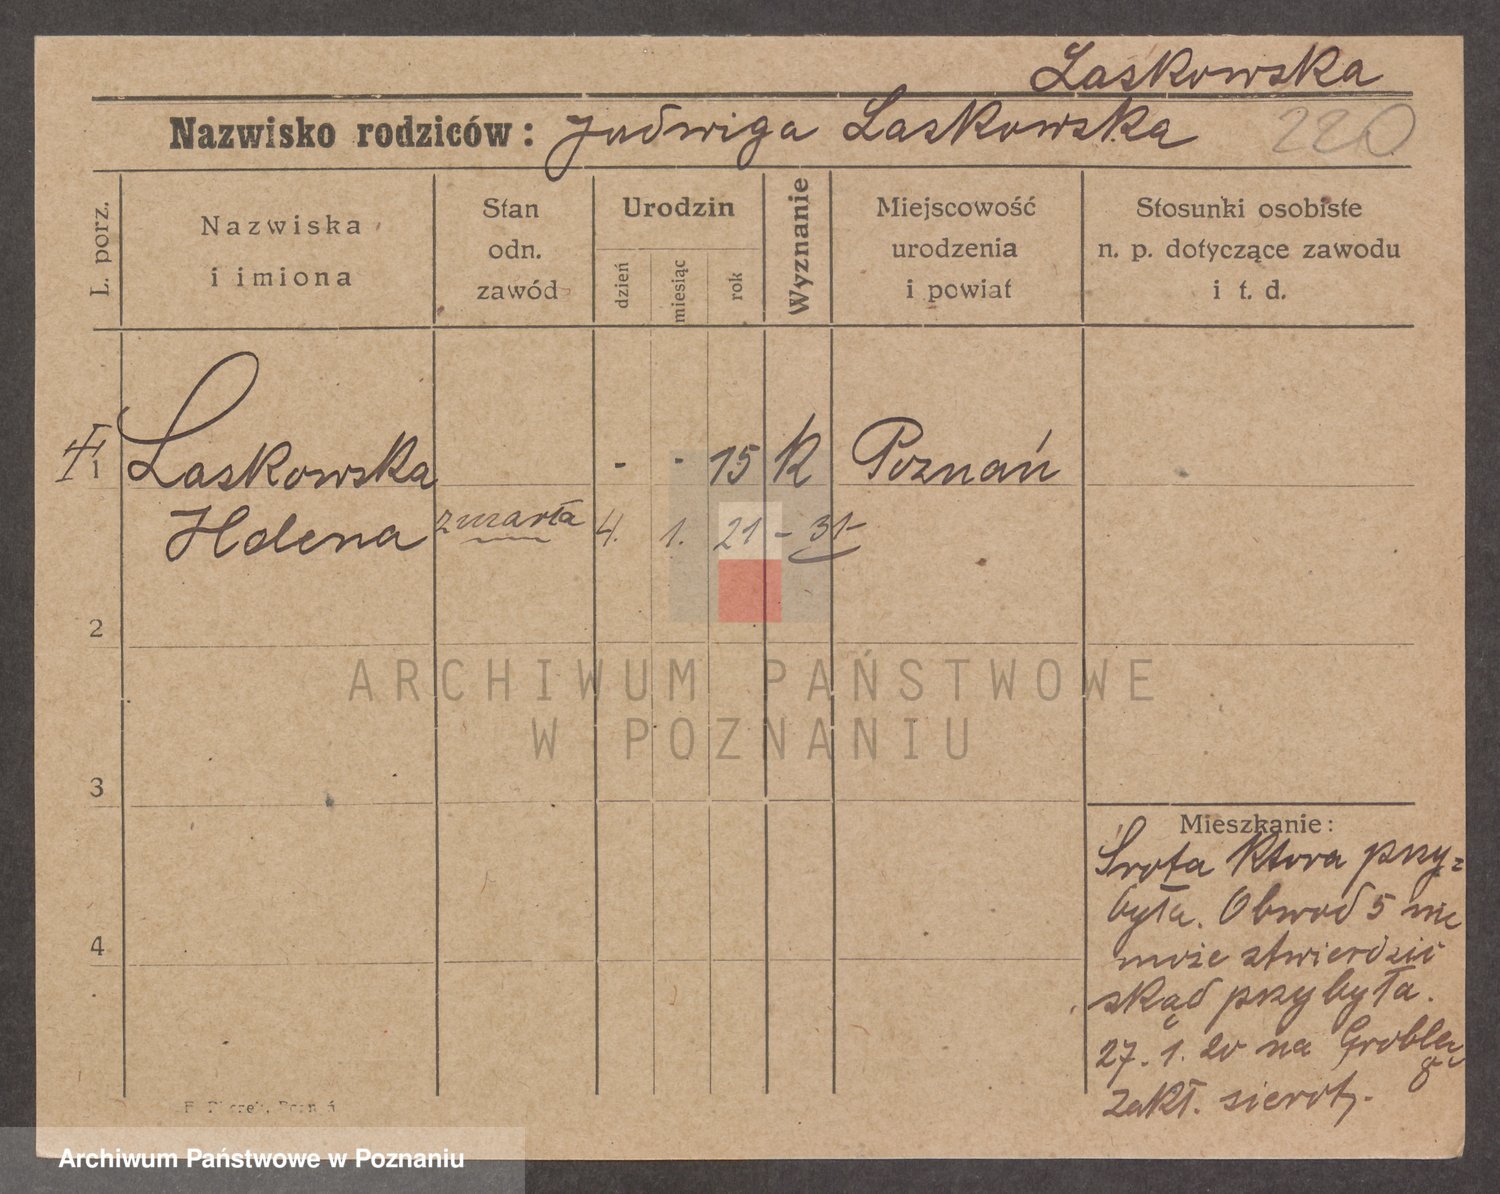 Laskowska
Nazwisko rodziców: Jadwiga Laskowska 220
L. porz.
Nazwiska
i imiona
Stan
odn.
zawód
Urodzin
dzień
miesiąc
rok
Wyznanie
Miejscowość
urodzenia
i powiat
Stosunki osobiste
n. p. dotyczące zawodu
i t. d.
1 Laskowska - - 15 K Poznań
Helena zmarła 4. 1. 21 - 31-
2
ARCHIWUM PAŃSTWOWE
W POZNANIU
3
4
Mieszkanie:
Srota Ktora przy=
była. Obwod 5 nie
może stwierdzić
skąd przybyła.
27. 1. 20 na Groblę
8
zakł. sierot.
Archiwum Państwowe w Poznaniu